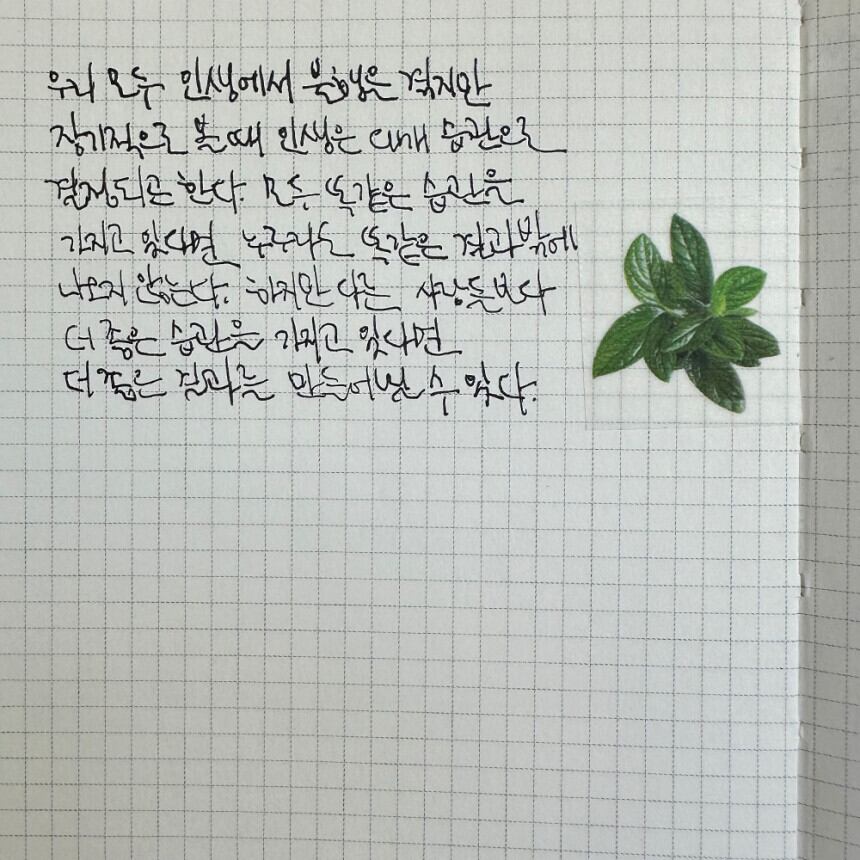 우리 모두 인생에서 불행은 겪지만
장기적으로 볼 때 인생은 대개 습관으로
결정되곤 한다. 모두 똑같은 습관을
가지고 있다면 누구라도 똑같은 결과밖에
나오지 않는다. 하지만 다른 사람들보다
더 좋은 습관을 가지고 있다면
더 좋은 결과를 만들어낼 수 있다.